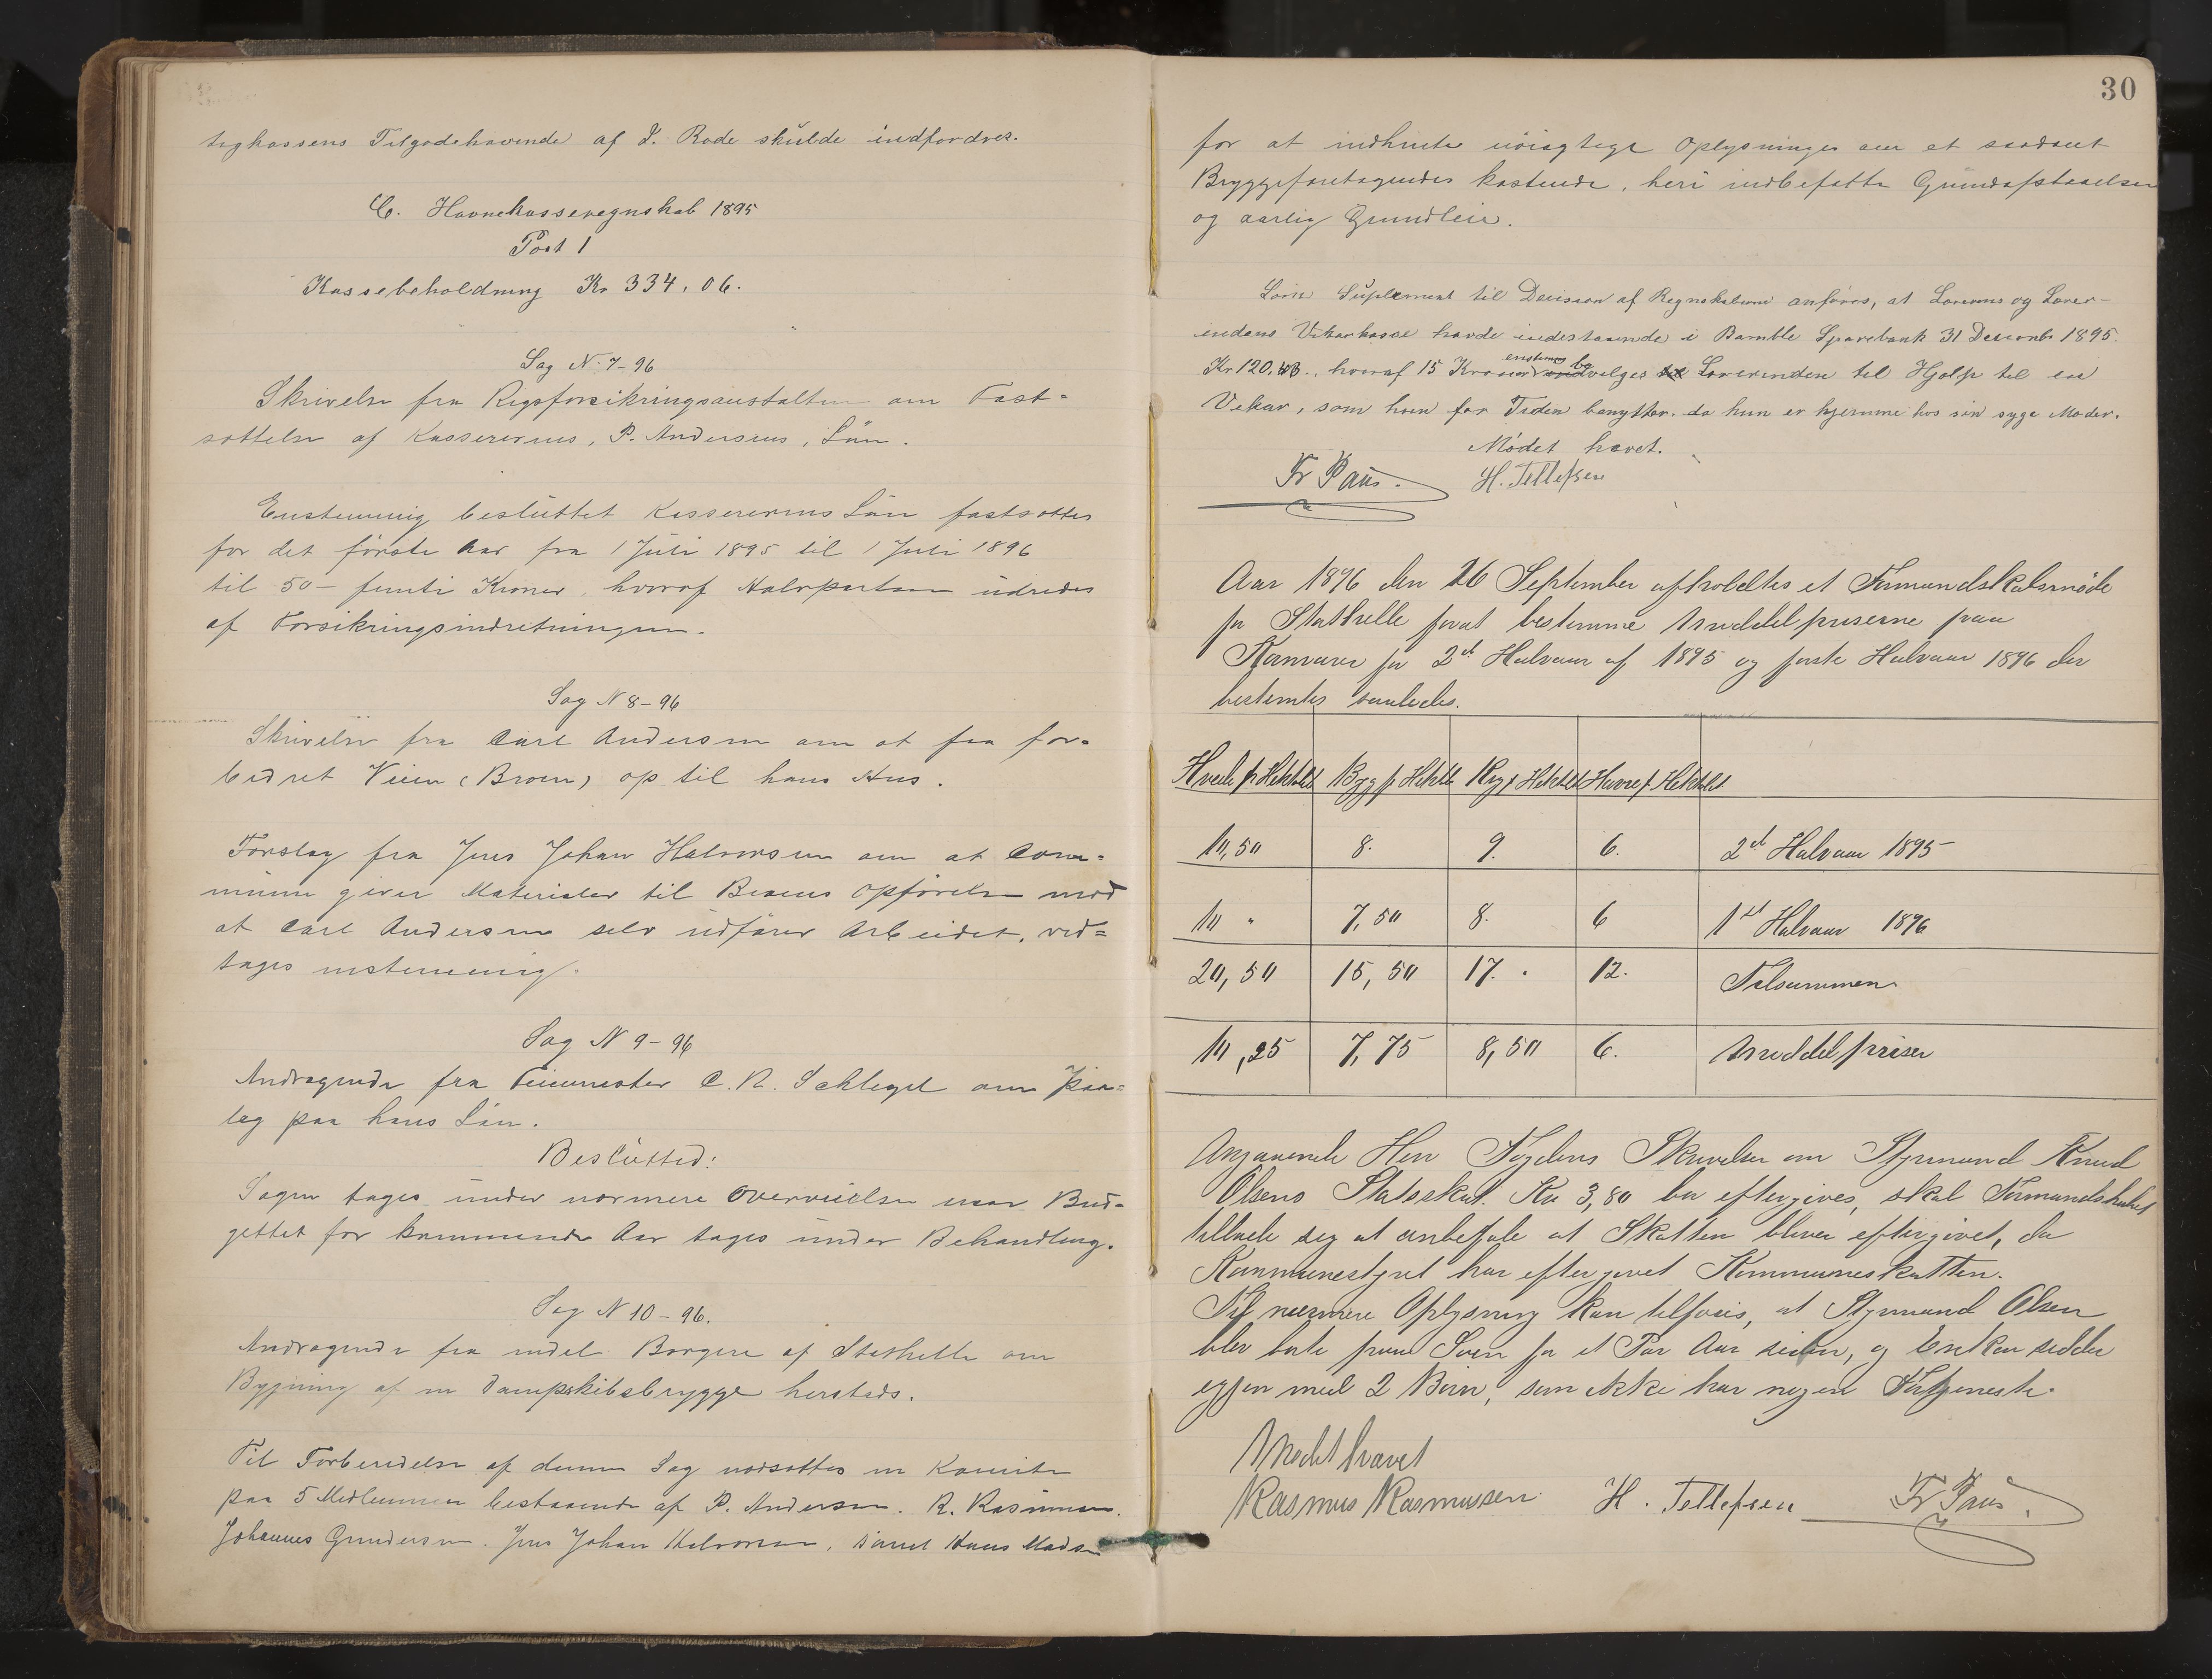 tigkassens Tilgodehavende af P. Rode skulde indfordres.
C. Havnekasseregnskab 1895
Post 1
Kassebeholdning Kr 334,06.
Sag N. 7-96
Skrivelse fra Rigsforsikringsanstalten om Fast-
sættelse af Kassererens, P. Andersens, Løn.
Enstemmig besluttet Kassererens Løn fastsættes
for det første Aar fra 1 Juli 1895 til 1 Juli 1896
til 50 – femti Kroner, hvoraf Halvparten udredes
af Forsikringsindretningen.
Sag N 8-96
Skrivelse fra Carl Andersen om at faa for-
bedret Veien (Broen) op til hans Hus.
Forslag fra Jens Johan Halvorsen om at Com-
munen giver Materialer til Broens Opførelse mod
at Carl Andersen selv udfører Arbeidet, ved-
tages enstemmig.
Sag N 9-96
Andragende fra Feiermester C. N. Schlegel om Paa-
læg paa hans Løn.
Beslutted:
Sagen tages under nærmere Overveielse naar Bud-
gettet for kommende Aar tages under Behandling.
Sag N 10-96.
Andragende fra endel Borgere af Stathelle om
Bygning af en Dampskibsbrygge hersteds.
Til Forberedelse af denne Sag nedsættes en Komite
paa 5 Medlemmer bestaaende af P. Andersen. R. Rasmussen.
Johannes Gundersen. Jens Johan Halvorsen, samt Hans Madsen
30
for at indhente nøiagtige Oplysninger om et saadant
Bryggeforetagendes kostende, heri indbefatte Grundafstaaelser
og aarlig Grundleie.
Som Suplement til Decision af Regnskaberne anføres, at Lærerens og Lærer-
indens Vikarkasse havde indestaaende i Bamble Sparebank 31 Decemb. 1895.
Kr 120, hvoraf 15 Kroner enstemig be vilges Lærerinden til Hjælp til en
Vikar, som hun for Tiden benytter. da hun er hjemme hos sin syge Moder.
Mødet hævet.
Fr Paus. H. Tellefsen
Aar 1896 den 26 September afholdtes et Formandskabsmøde
for Stathelle forat bestemme Middelpriserne paa
Kornvarer for 2det Halvaar af 1895 og første Halvaar 1896 der
bestemtes saaledes.
Hvede p Hektolit Byg p Hektlt Rug p Hektolt Havre p Hektolit
10,50 8. 9. 6. 2det Halvaar 1895
10 " 7,50 8. 6 1ste Halvaar 1896
20,50 15,50 17. " 12. Tilsammen
10,25 7,75 8,50 6. Middelpriser
Angaaende Herr Fogdens Skrivelse om Styrmand Knud
Olsens Statsskat Kr 3,80 bør eftergives, skal Formandskabet
tillade sig at anbefale at Skatten bliver eftergivet, da
Kommunestyret har eftergivet Kommuneskatten.
Til nærmere Oplysning kan tilføies, at Styrmand Olsen
blev borte paa Søen for et Par Aar siden, og Enken sidder
igjen med 2 Børn, som ikke har nogen Fortjeneste.
Mødet hævet
Rasmus Rasmussen H. Tellefsen Fr Paus.